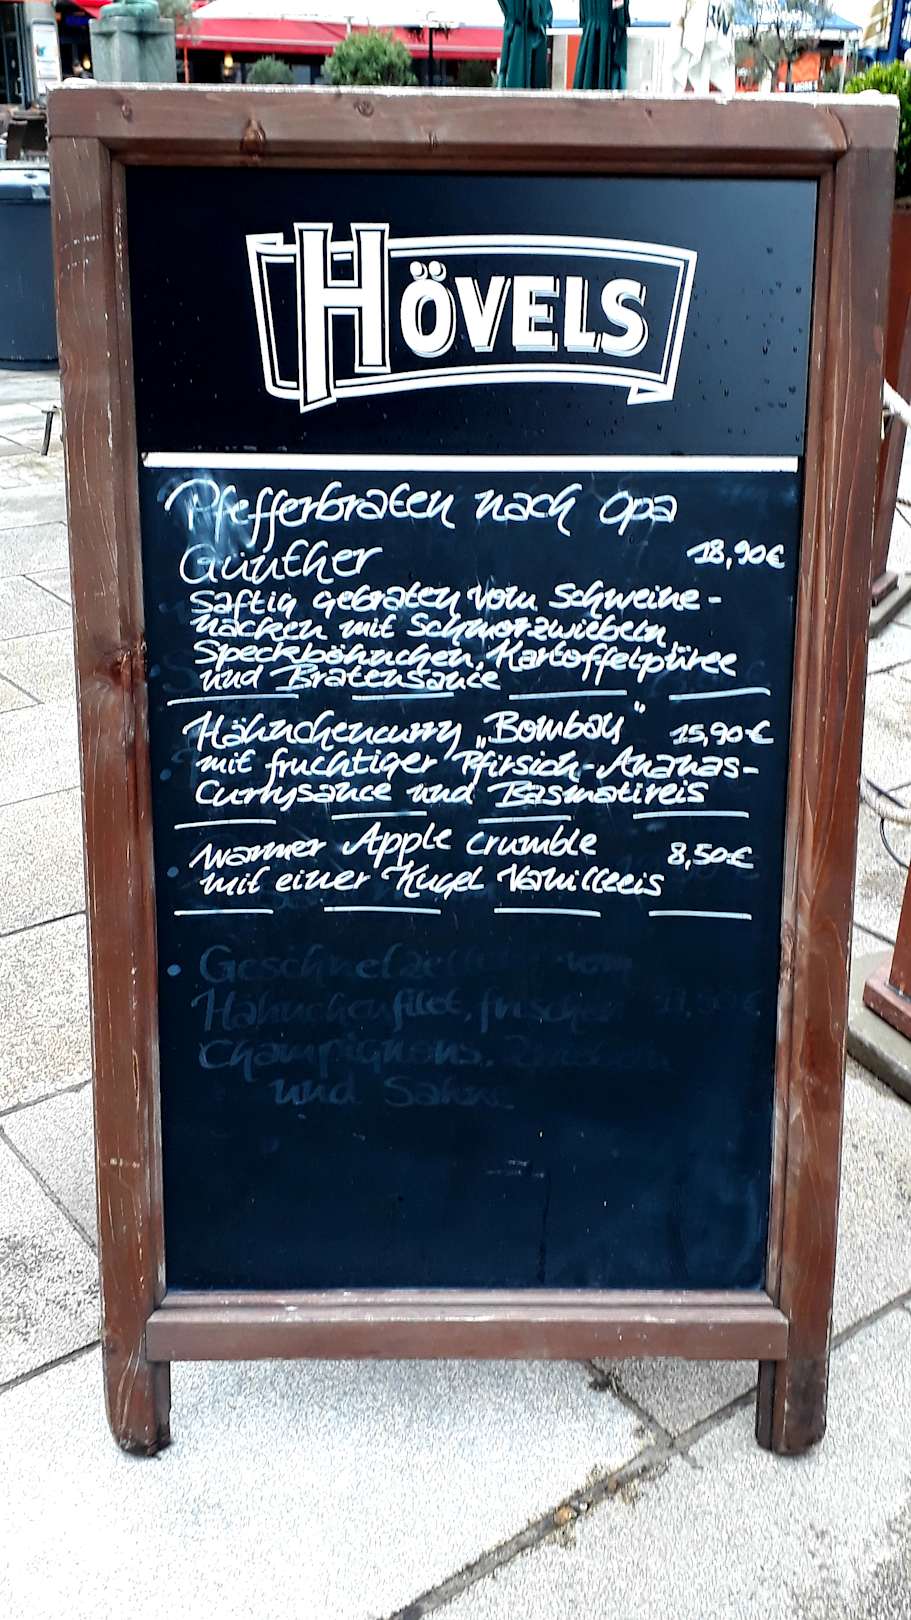 HÖVELS
Pfefferbraten nach Opa
Günther 18,90€
Saftig gebraten vom Schweine-
nacken mit Schmorzwiebeln,
Speckböhnchen, Kartoffelpüree
und Bratensauce
Hähnchencurry „Bombay" 15,90€
mit fruchtiger Pfirsich-Ananas-
Currysauce und Basmatireis
Warmer Apple Crumble 8,50€
mit einer Kugel Vanilleeis
• Geschnetzeltes vom
Hähnchenfilet, frischen
Champignons,
und Sahne